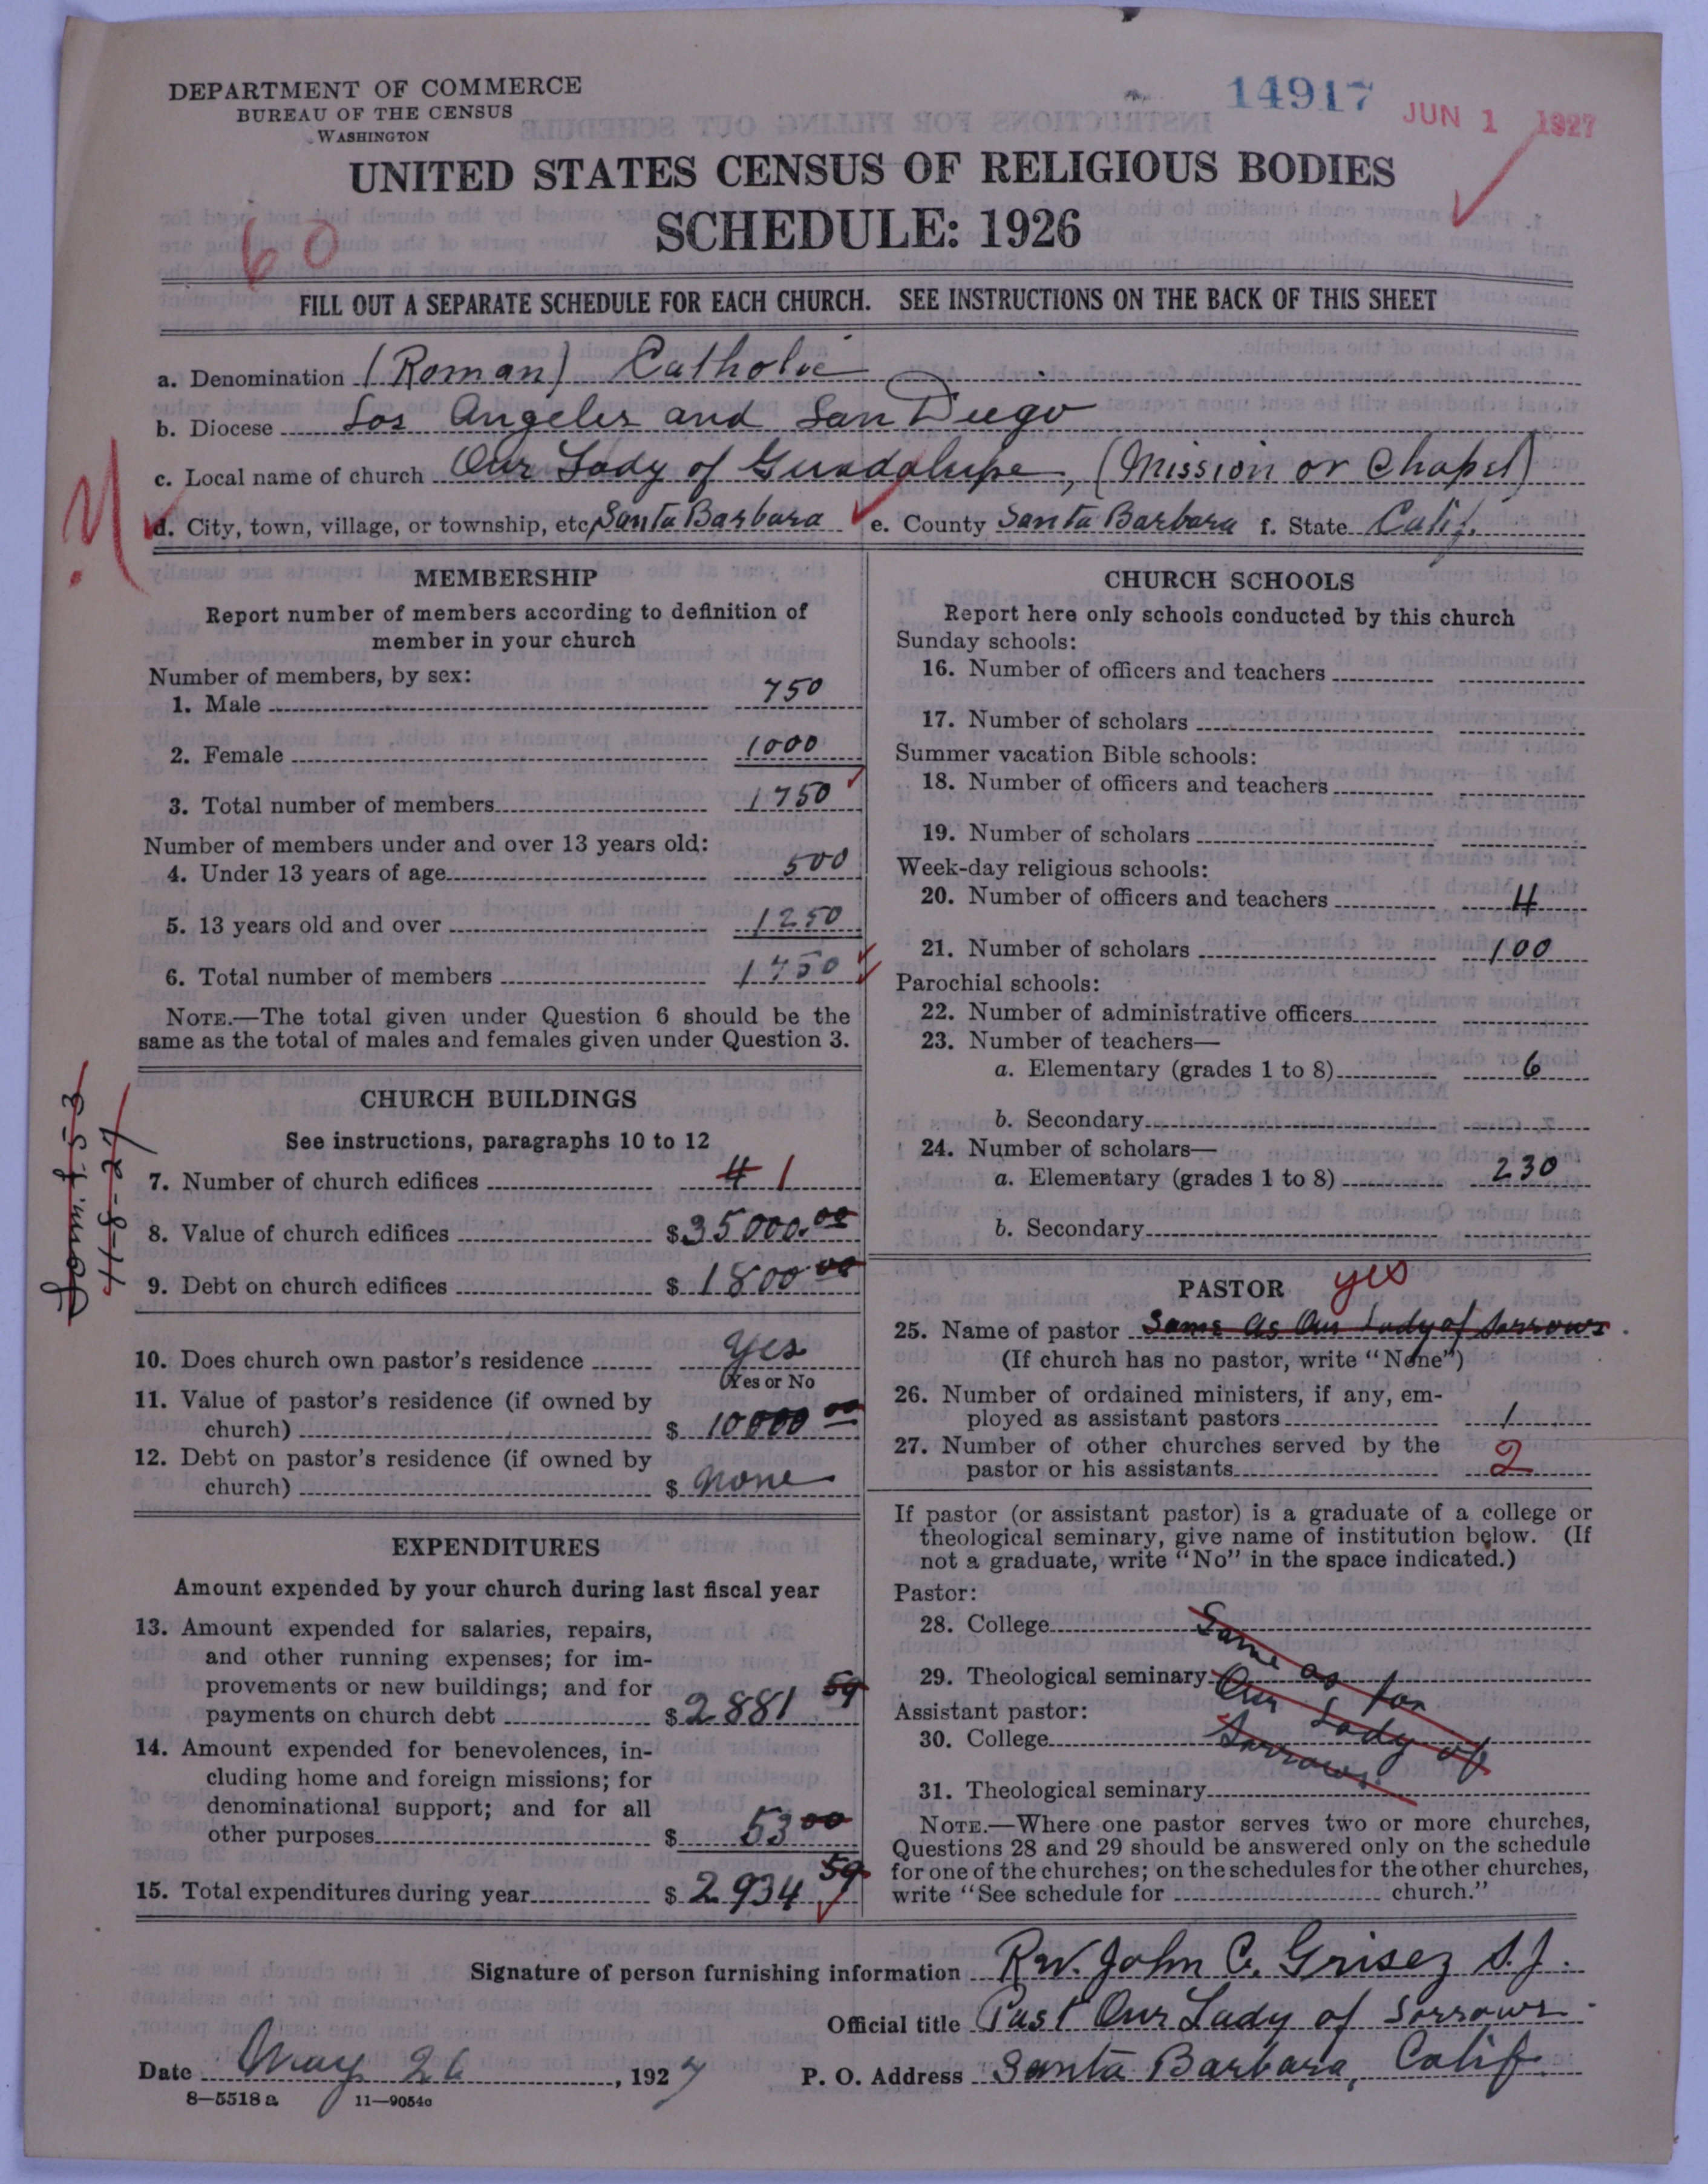 DEPARTMENT OF COMMERCE
BUREAU OF THE CENSUS
WASHINGTON
14917
JUN 1 1927
UNITED STATES CENSUS OF RELIGIOUS BODIES
SCHEDULE: 1926
60
FILL OUT A SEPARATE SCHEDULE FOR EACH CHURCH. SEE INSTRUCTIONS ON THE BACK OF THIS SHEET
a. Denomination (Roman) Catholic
b. Diocese Los Angeles and San Diego
c. Local name of church Our Lady of Guadalupe, (Mission or Chapel)
d. City, town, village, or township, etc. Santa Barbara e. County Santa Barbara f. State Calif.
MEMBERSHIP
Report number of members according to definition of
member in your church
Number of members, by sex:
1. Male 750
2. Female 1000
3. Total number of members 1750
Number of members under and over 13 years old:
4. Under 13 years of age 500
5. 13 years old and over 1250
6. Total number of members 1750
NOTE.—The total given under Question 6 should be the
same as the total of males and females given under Question 3.
CHURCH BUILDINGS
See instructions, paragraphs 10 to 12
7. Number of church edifices 4 1
8. Value of church edifices $35000.00
9. Debt on church edifices $1800 00
10. Does church own pastor's residence yes
Yes or No
11. Value of pastor's residence (if owned by
church) $10000 00
12. Debt on pastor's residence (if owned by
church) $ none
EXPENDITURES
Amount expended by your church during last fiscal year
13. Amount expended for salaries, repairs,
and other running expenses; for im-
provements or new buildings; and for
payments on church debt $2881 59
14. Amount expended for benevolences, in-
cluding home and foreign missions; for
denominational support; and for all
other purposes $ 53 00
15. Total expenditures during year $2934 59
4-8-27
CHURCH SCHOOLS
Report here only schools conducted by this church
Sunday schools:
16. Number of officers and teachers
17. Number of scholars
Summer vacation Bible schools:
18. Number of officers and teachers
19. Number of scholars
Week-day religious schools:
20. Number of officers and teachers 4
21. Number of scholars 100
Parochial schools:
22. Number of administrative officers
23. Number of teachers—
a. Elementary (grades 1 to 8) 6
b. Secondary
24. Number of scholars—
a. Elementary (grades 1 to 8) 230
b. Secondary
PASTOR yes
25. Name of pastor Same as Our Lady of Sorrows.
(If church has no pastor, write "None")
26. Number of ordained ministers, if any, em-
ployed as assistant pastors 1
27. Number of other churches served by the
pastor or his assistants 2
If pastor (or assistant pastor) is a graduate of a college or
theological seminary, give name of institution below. (If
not a graduate, write "No" in the space indicated.)
Pastor:
28. College Same as for
29. Theological seminary Our Lady of
Assistant pastor:
30. College Sorrows.
31. Theological seminary
NOTE.—Where one pastor serves two or more churches,
Questions 28 and 29 should be answered only on the schedule
for one of the churches; on the schedules for the other churches,
write "See schedule for church."
Signature of person furnishing information Rev. John C. Grisez S.J.
Official title Past Our Lady of Sorrows.
Date May 26, 1927 P. O. Address Santa Barbara, Calif.
8—5518 a 11—9054a